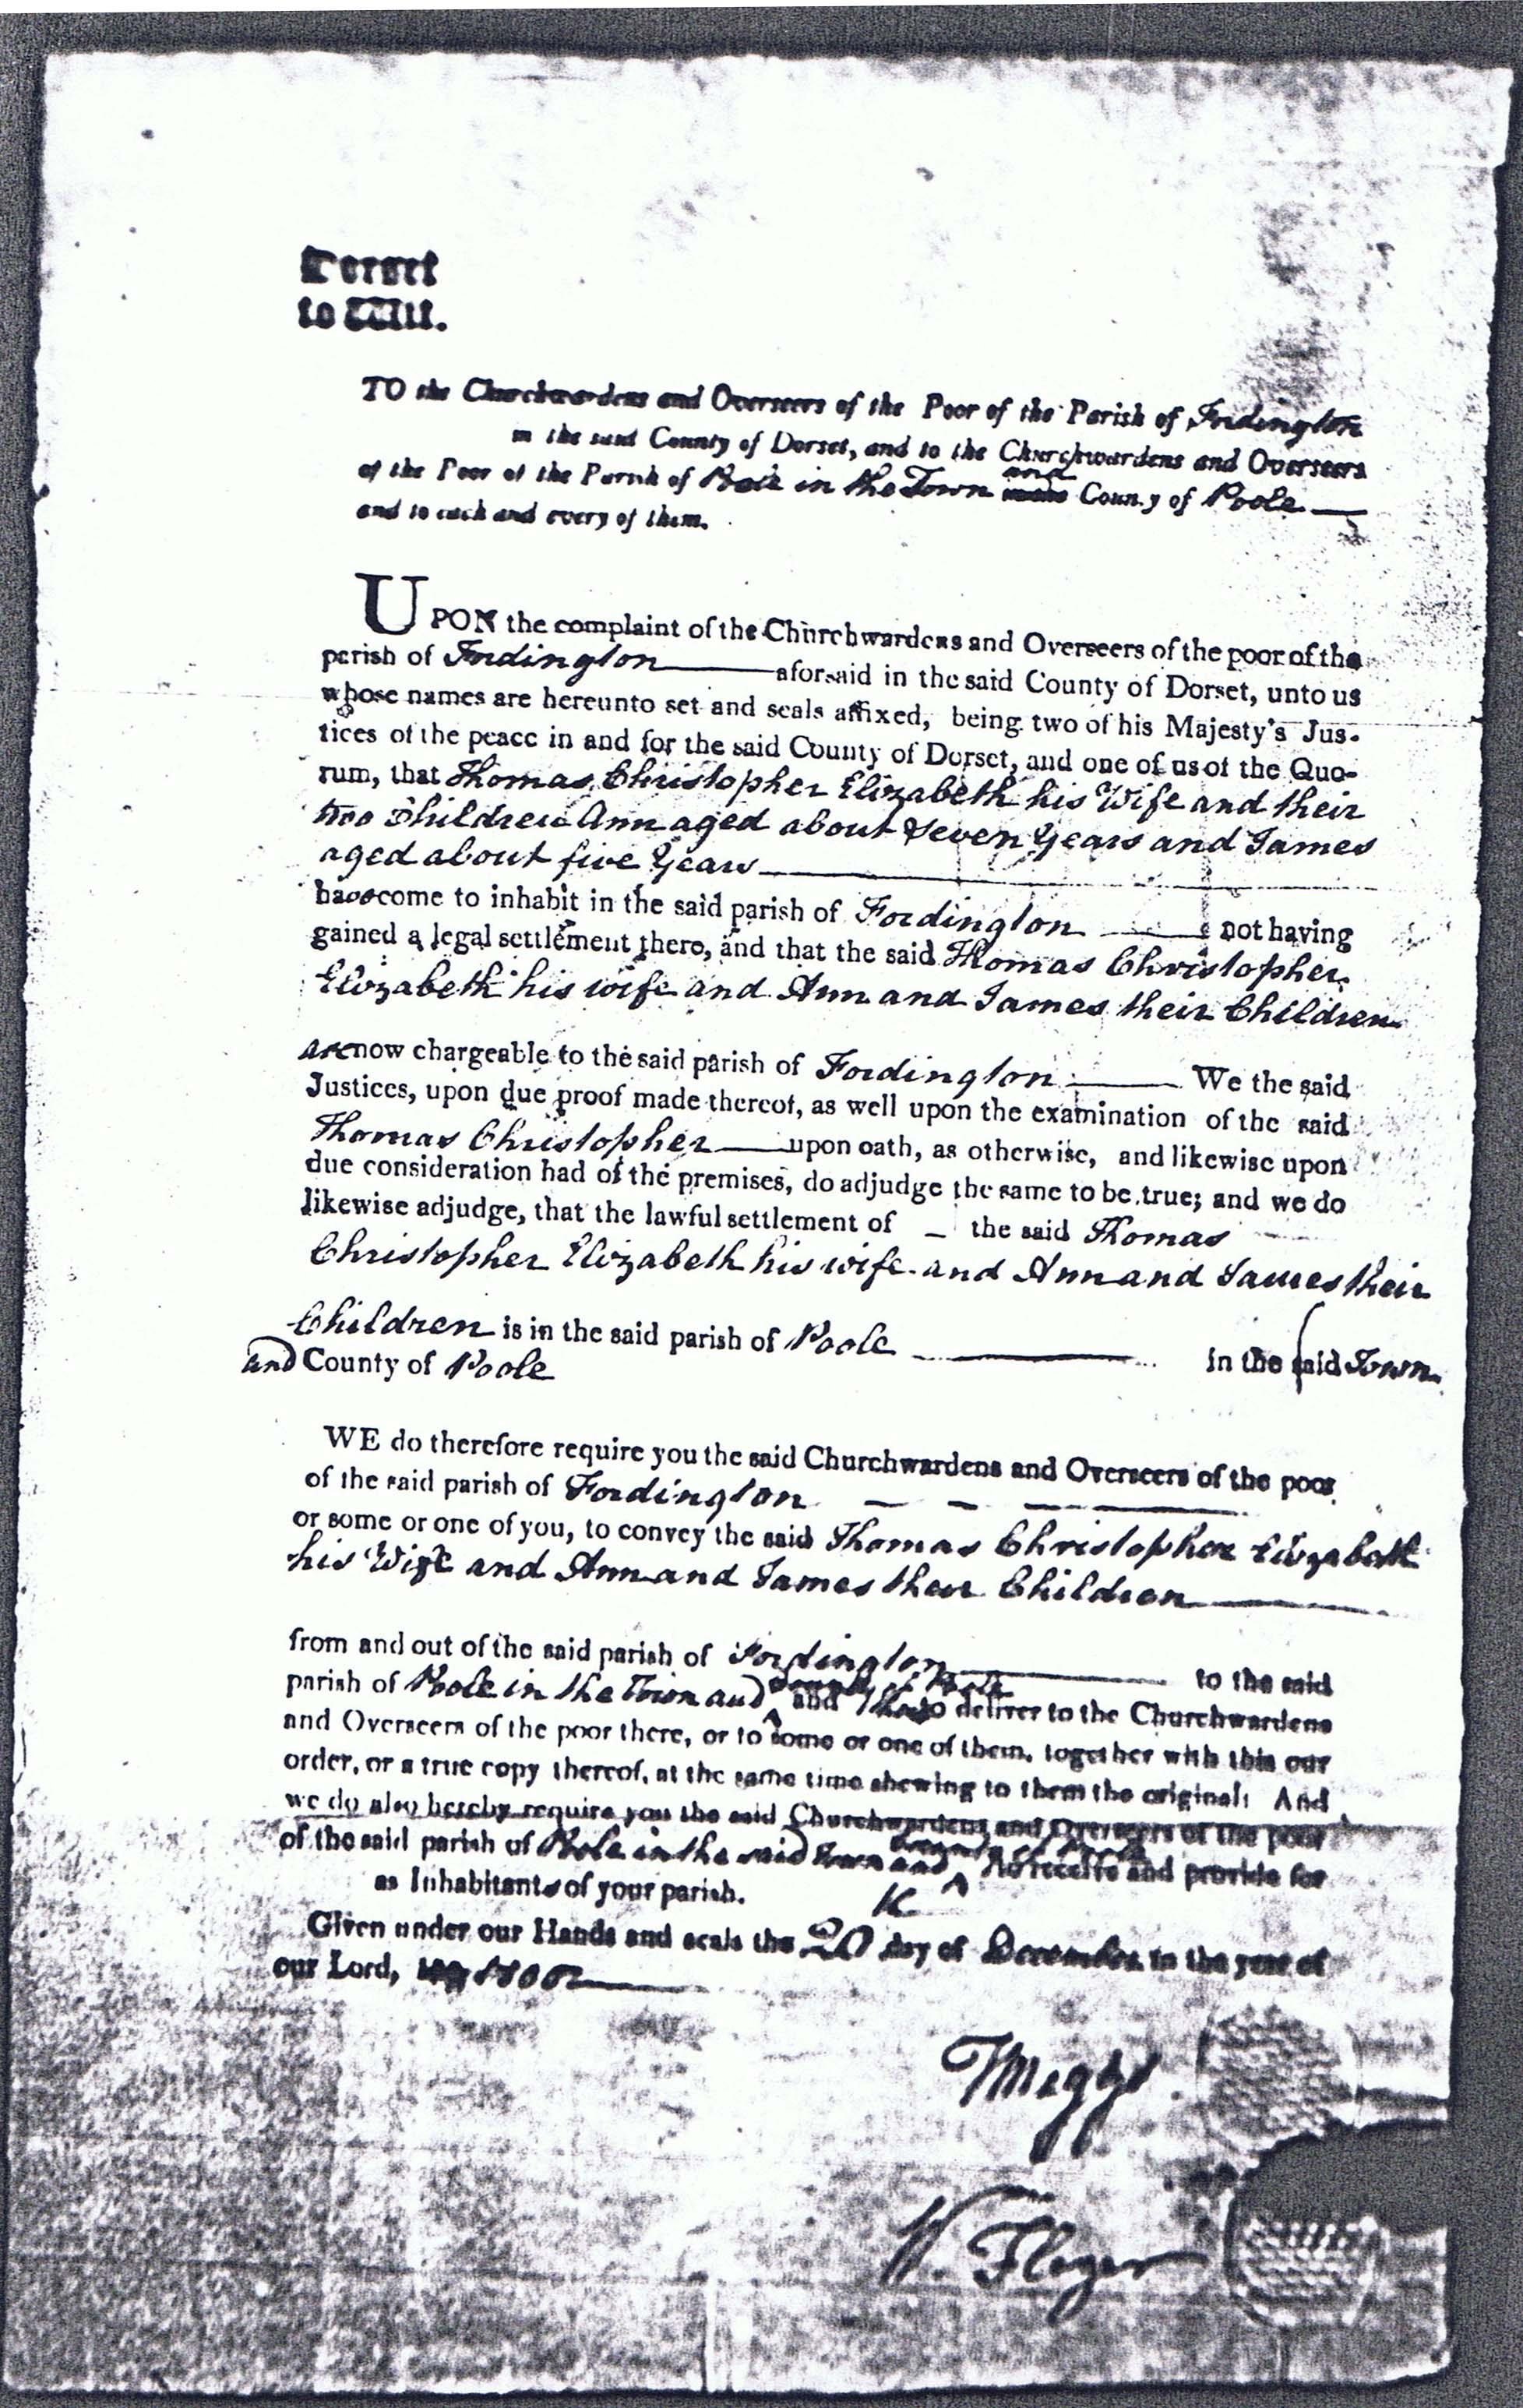 Dorset
to Wit.
TO the Churchwardens and Overseers of the Poor of the Parish of Fordington
in the said County of Dorset, and to the Churchwardens and Overseers
of the Poor of the Parish of Poole in the Town and County of Poole
and to each and every of them.
UPON the complaint of the Churchwardens and Overseers of the poor of the
parish of Fordington aforsaid in the said County of Dorset, unto us
whose names are hereunto set and seals affixed, being two of his Majesty's Jus-
tices of the peace in and for the said County of Dorset, and one of us of the Quo-
rum, that Thomas Christopher Elizabeth his Wife and their
two Children Ann aged about Seven Years and James
aged about five Years
have come to inhabit in the said parish of Fordington not having
gained a legal settlement there, and that the said Thomas Christopher
Elizabeth his wife and Ann and James their Children
are now chargeable to the said parish of Fordington We the said
Justices, upon due proof made thereof, as well upon the examination of the said
Thomas Christopher upon oath, as otherwise, and likewise upon
due consideration had of the premises, do adjudge the same to be true; and we do
likewise adjudge, that the lawful settlement of the said Thomas
Christopher Elizabeth his wife and Ann and James their
Children is in the said parish of Poole in the said Town
and County of Poole
WE do therefore require you the said Churchwardens and Overseers of the poor
of the said parish of Fordington
or some or one of you, to convey the said Thomas Christopher Elizabeth
his Wife and Ann and James their Children
from and out of the said parish of Fordington to the said
parish of Poole in the Town and County of Poole and them to deliver to the Churchwardens
and Overseers of the poor there, or to some or one of them, together with this our
order, or a true copy thereof, at the same time shewing to them the original: And
we do also hereby require you the said Churchwardens and Overseers of the poor
of the said parish of Poole in the said Town and County of Poole to receive and provide for
as Inhabitants of your parish.
Given under our Hands and seals the 20 day of December in the year of
our Lord, 1800
T Meggs
W. Floyer